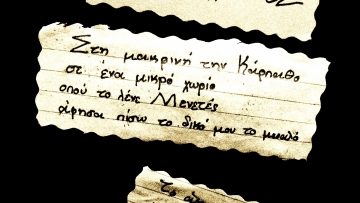 Στη μακρινή την Κάρπαθο
σ' ένα μικρό χωριό
οπού το λένε Μενετές
άφησα πίσω το δικό μου το μυαλό
Το